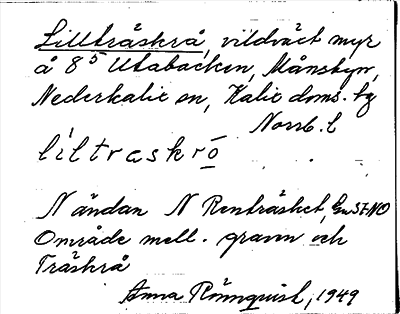 Lillträskrå, vildväxt myr
å 8⁵ Utabacken, Månsbyn,
Nederkalix sn, Kalix doms. by
Norrb. l
liltraskrō
N ändan N Renträsket,
Område mell. graven och
Träskrå
Anna Rönnquist, 1949